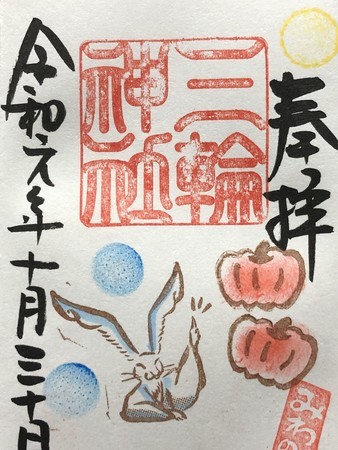 奉拝
三輪
神社
令和元年十月三十日
みわの